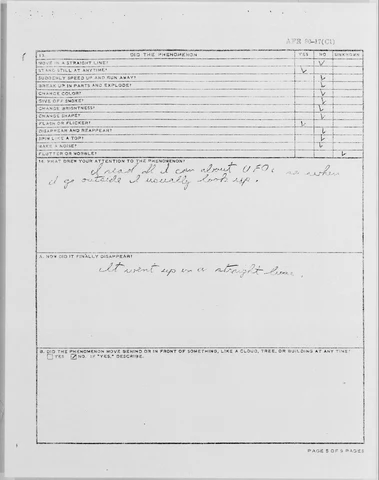 AFM 80-17(C1)
13. DID THE PHENOMENON YES NO UNKNOWN
MOVE IN A STRAIGHT LINE? ✓
STAND STILL AT ANYTIME? ✓
SUDDENLY SPEED UP AND RUN AWAY? ✓
BREAK UP IN PARTS AND EXPLODE? ✓
CHANGE COLOR? ✓
GIVE OFF SMOKE? ✓
CHANGE BRIGHTNESS? ✓
CHANGE SHAPE? ✓
FLASH OR FLICKER? ✓
DISAPPEAR AND REAPPEAR? ✓
SPIN LIKE A TOP? ✓
MAKE A NOISE? ✓
FLUTTER OR WOBBLE? ✓
14. WHAT DREW YOUR ATTENTION TO THE PHENOMENON?
I read all I can about UFOs so when
I go outside I usually look up.
A. HOW DID IT FINALLY DISAPPEAR?
It went up in a straight line.
B. DID THE PHENOMENON MOVE BEHIND OR IN FRONT OF SOMETHING, LIKE A CLOUD, TREE, OR BUILDING AT ANY TIME?
YES NO. IF "YES," DESCRIBE.
PAGE 5 OF 9 PAGES